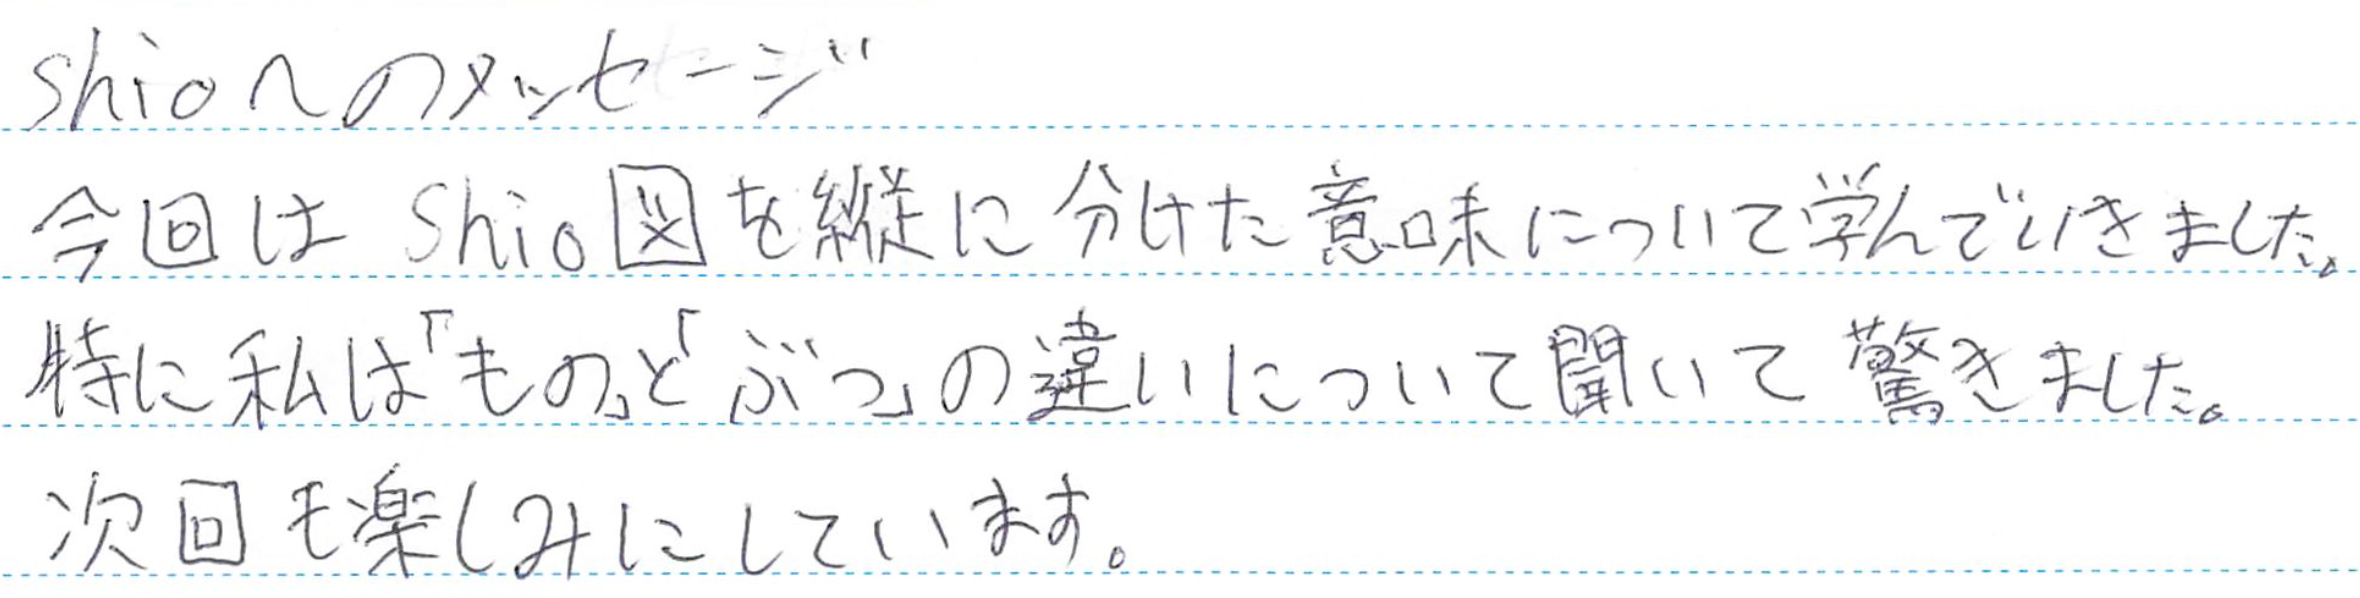 shioへのメッセージ
今回はshio図を縦に分けた意味について学んでいきました。
特に私は「もの」と「ぶつ」の違いについて聞いて驚きました。
次回も楽しみにしています。